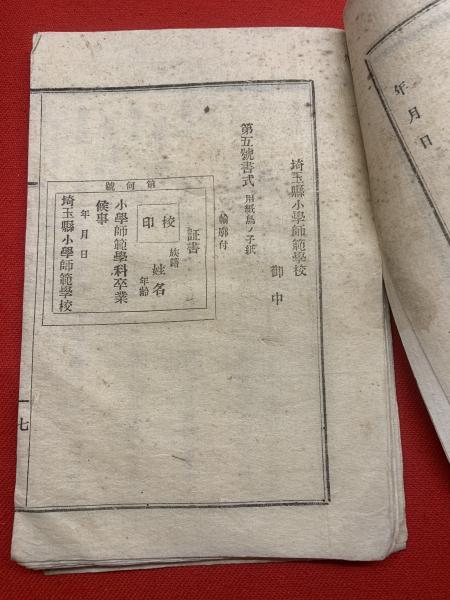 年月日
埼玉縣小學師範學校
御中
第五號書式 用紙鳥ノ子紙
輪廓付
第何號
証書
族籍
姓名
年齡
校印
小學師範學科卒業
候事
年月日
埼玉縣小學師範學校
七